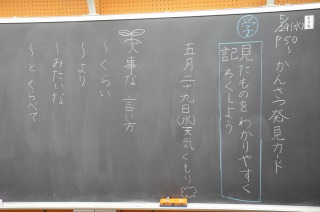 5/29(水)
P50〜 かんさつ発見カード
学
見たものをわかりやすく
記ろくしよう
五月二十九日(水)天気くもり
大事な言い方
〜くらい
〜より
〜みたいな
〜とくらべて